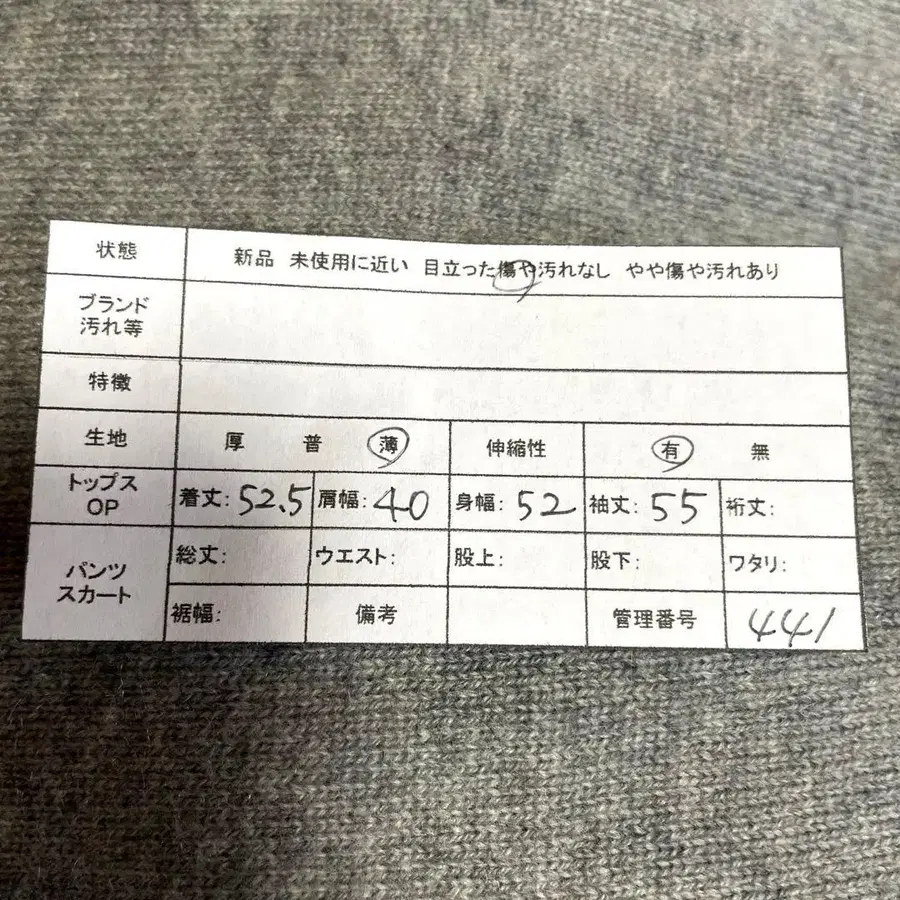 状態 新品 未使用に近い 目立った傷や汚れなし やや傷や汚れあり
ブランド
汚れ等
特徴
生地 厚 普 薄 伸縮性 有 無
トップス
OP
着丈: 52.5 肩幅: 40 身幅: 52 袖丈: 55 裄丈:
パンツ
スカート
総丈: ウエスト: 股上: 股下: ワタリ:
裾幅: 備考 管理番号 441